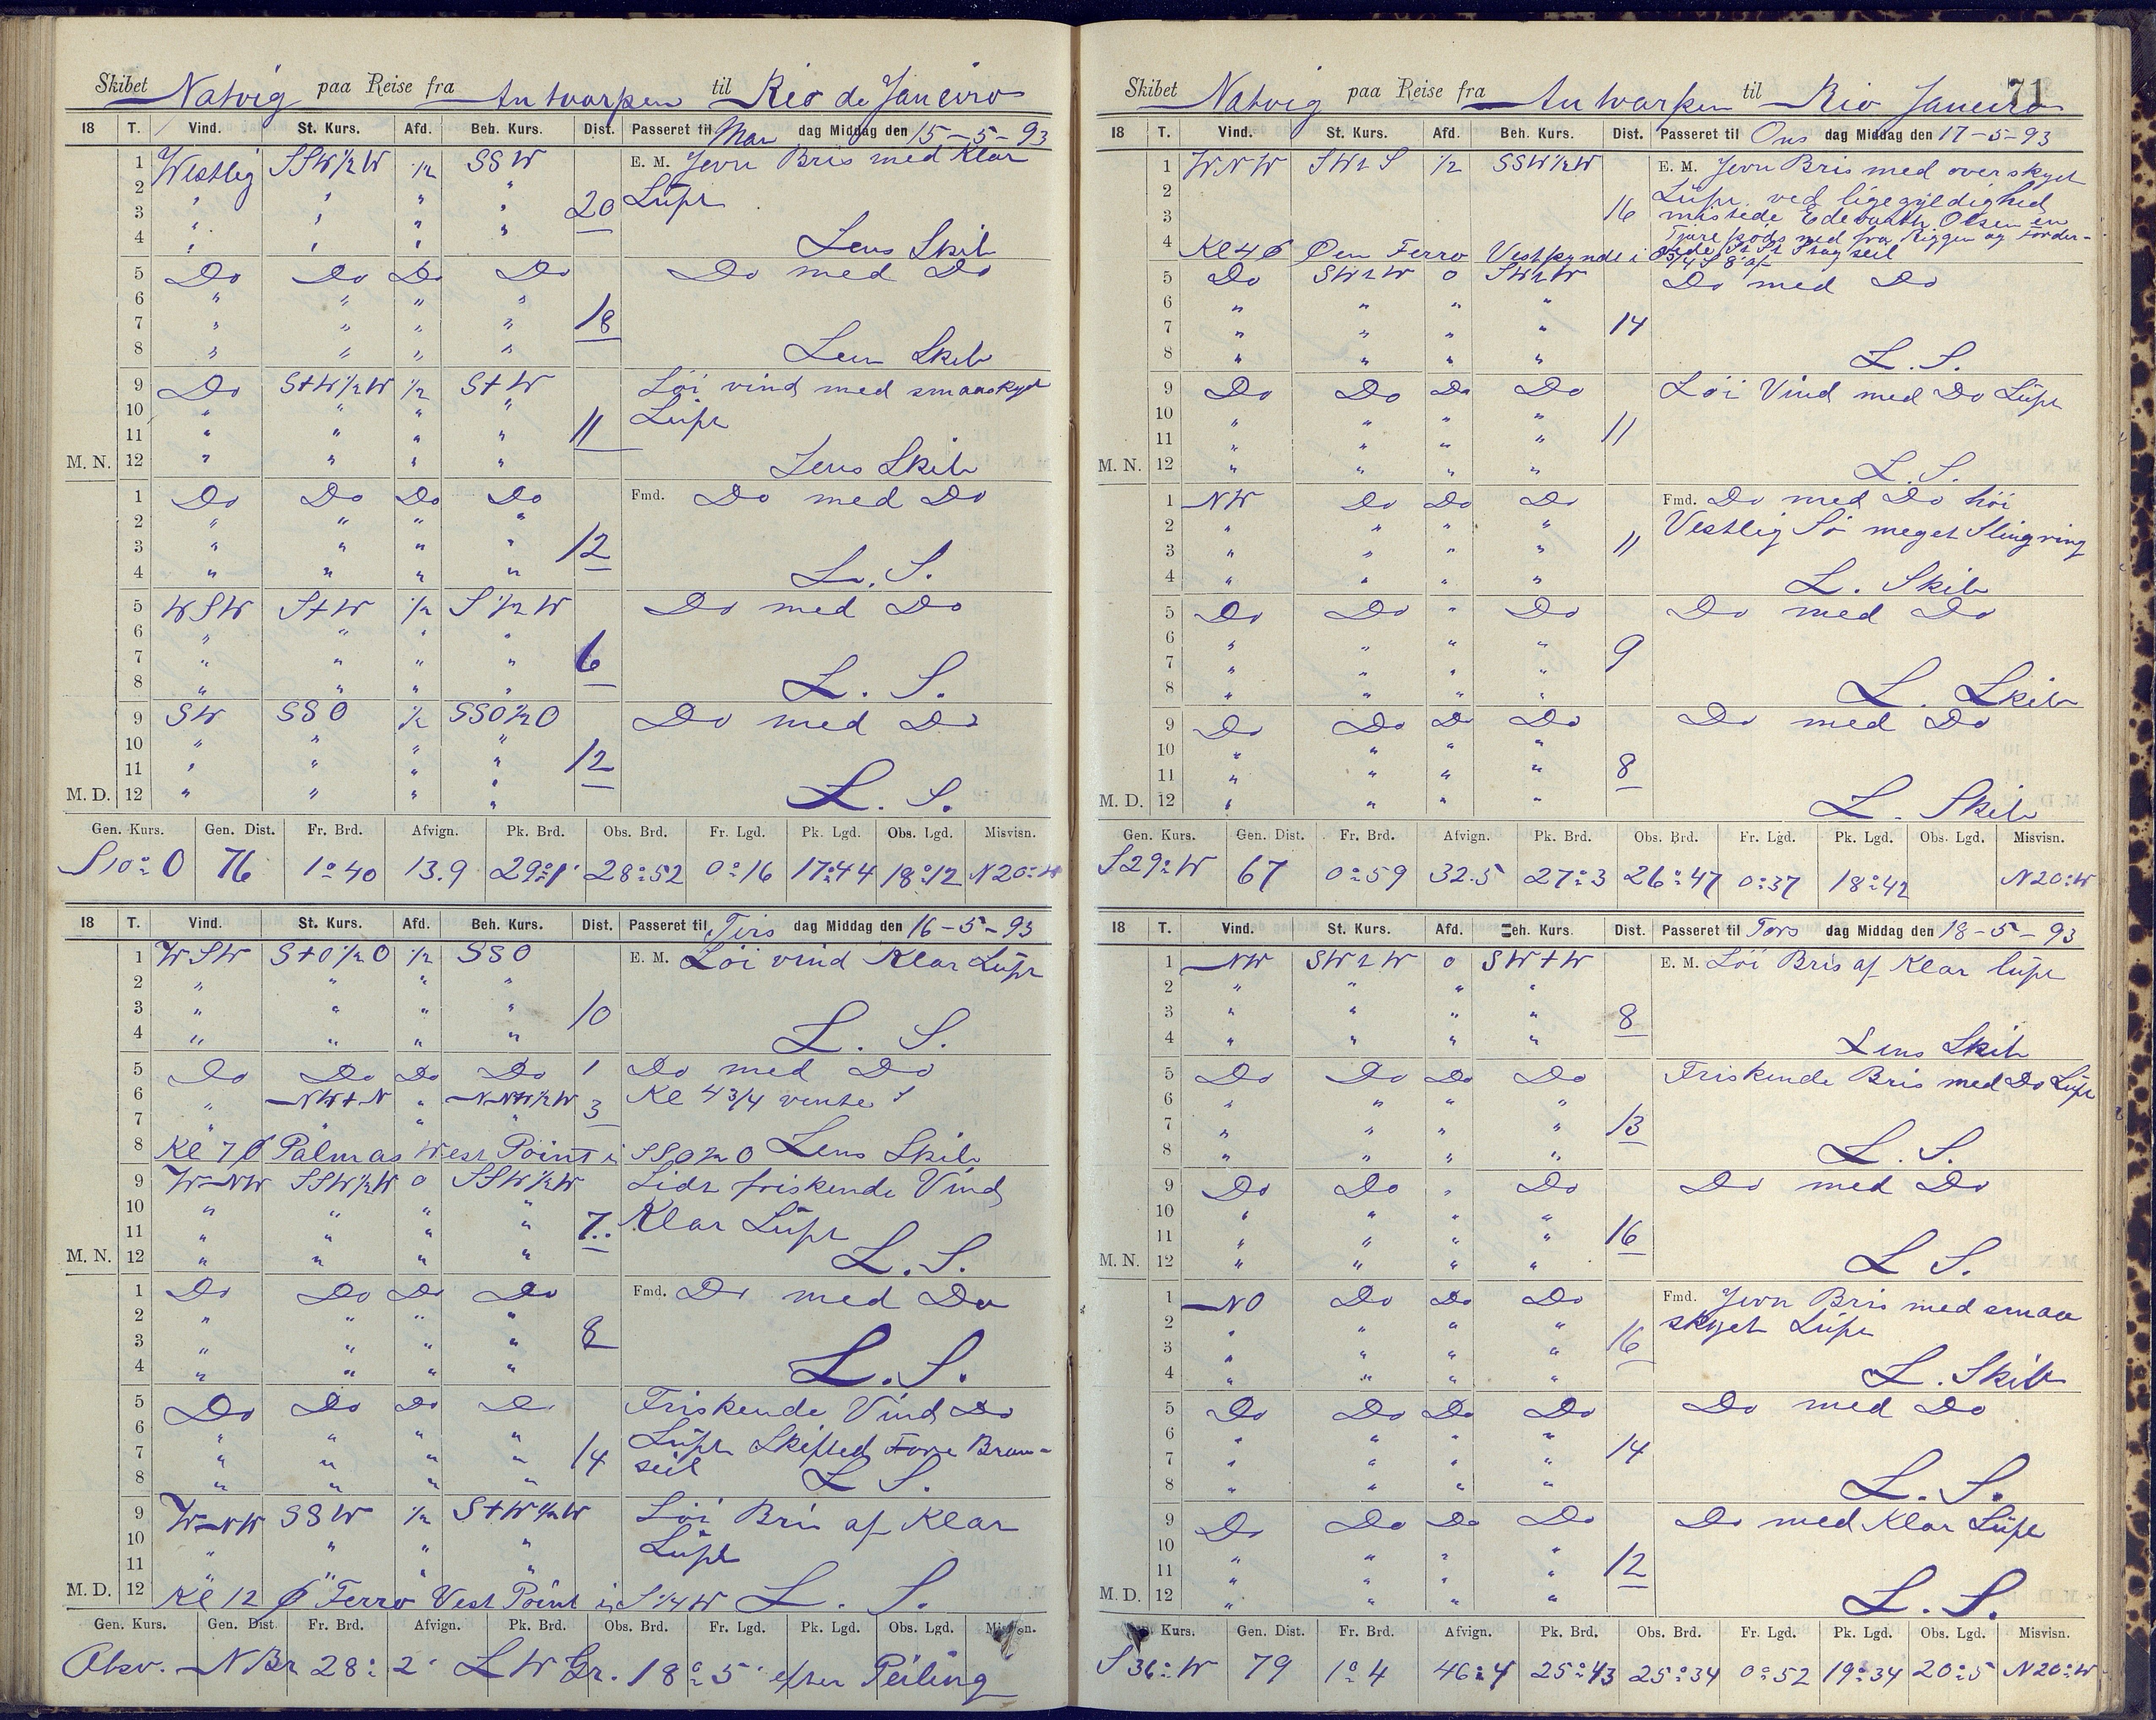 Skibet Natvig paa Reise fra Antwarpen til Rio de Janeiro
18 T. Vind. St. Kurs. Afd. Beh. Kurs. Dist. Passeret til Man dag Middag den 15-5-93
1 Westlig SSW½W ½ SSW E. M. Jevn Bris med Klar
2 " " " " Luft
3 " " " " 20
4 " " " " Lens Skib
5 Do Do Do Do Do med Do
6 " " " "
7 " " " " 18
8 " " " " Lens Skib
9 Do S+W½W ½ S+W Löi vind med smaaskyet
10 " " " " Luft
11 " " " " 11
M. N. 12 " " " " Lens Skib
1 Do Do Do Do Fmd. Do med Do
2 " " " "
3 " " " " 12
4 " " " " L. S.
5 WSW S+W ½ S½W Do med Do
6 " " " "
7 " " " " 6
8 " " " " L. S.
9 SW SSO ½ SSO½O Do med Do
10 " " " "
11 " " " " 12
M. D. 12 " " " " L. S.
Gen. Kurs. Gen. Dist. Fr. Brd. Afvign. Pk. Brd. Obs. Brd. Fr. Lgd. Pk. Lgd. Obs. Lgd. Misvisn.
S10°O 76 1°40 13.9 29°1' 28°52 0°16 17°44 18°12 N20°W
18 T. Vind. St. Kurs. Afd. Beh. Kurs. Dist. Passeret til Tirs dag Middag den 16-5-93
1 WSW S+O½O ½ SSO E. M. Löi vind Klar Luft
2 " " " "
3 " " " " 10
4 " " " " L. S.
5 Do Do Do Do 1 Do med Do
6 " NW+N " NNW½W 3 Kl 4 3/4 vente
7 " " " "
8 Kl 7 Palmas West Point i SSO½O Lens Skib
9 WNW SSW½W 0 SSW½W Lidt friskende Vind
10 " " " " Klar Luft
11 " " " " 7
M. N. 12 " " " " L. S.
1 Do Do Do Do Fmd. Do med Do
2 " " " "
3 " " " " 8
4 " " " " L. S.
5 Do Do Do Do Friskende Vind Do
6 " " " " Luft Skifted Forre Bram-
7 " " " " 14 seil
8 " " " " L S.
9 WNW SSW ½ S+W½W Löi Bris af Klar
10 " " " " Luft
11 " " " "
M. D. 12 Kl 12 Ferro Vest Point i S¼W L. S.
Gen. Kurs. Gen. Dist. Fr. Brd. Afvign. Pk. Brd. Obs. Brd. Fr. Lgd. Pk. Lgd. Obs. Lgd.
Obsv. N Br 28° 2' L W Gr. 18° 5' efter Peiling
71
Skibet Natvig paa Reise fra Antwarpen til Rio Janeiro
18 T. Vind. St. Kurs. Afd. Beh. Kurs. Dist. Passeret til Ons dag Middag den 17-5-93
1 WNW SWtS ½ SSW½W E. M. Jevn Bris med overskyet
2 Luft ved ligegyldighed
3 16 mistede Olsen en
4 Kl 4 Öen Ferro Vestpynt i
5 Do SWtW 0 SWtW Do med Do
6 " " " "
7 " " " " 14
8 " " " " L. S.
9 Do Do Do Do Löi Vind med Do Luft
10 " " " "
11 " " " " 11
M. N. 12 " " " " L. S.
1 NW Do Do Do Fmd. Do med Do höi
2 " " " " Vestlig Sö meget Slingring
3 " " " " 11
4 " " " " L. Skib
5 Do Do " Do Do med Do
6 " " " "
7 " " " " 9
8 " " " " L. Skib
9 Do Do Do Do Do med Do
10 " " " "
11 " " " " 8
M. D. 12 " " " " L. Skib
Gen. Kurs. Gen. Dist. Fr. Brd. Afvign. Pk. Brd. Obs. Brd. Fr. Lgd. Pk. Lgd. Obs. Lgd. Misvisn.
S29°W 67 0°59 32.5 27°3 26°47 0°37 18°42 N20°W
18 T. Vind. St. Kurs. Afd. Beh. Kurs. Dist. Passeret til Tors dag Middag den 18-5-93
1 NW SWtW 0 SW+W E. M. Löi Bris af Klar luft
2 " " " "
3 " " " " 8
4 " " " " Lens Skib
5 Do Do Do Do Friskende Bris med Do Luft
6 " " " "
7 " " " " 13
8 " " " " L. S.
9 Do Do " Do Do med Do
10 " " " "
11 " " " " 16
M. N. 12 " " " " L S.
1 NO Do Do Do Fmd. Jevn Bris med smaa
2 " " " " skyet Luft
3 " " " " 16
4 " " " " L. Skib
5 Do Do Do Do Do med Do
6 " " " "
7 " " " " 14
8 " " " " L. S.
9 Do Do Do Do Do med Klar Luft
10 " " " "
11 " " " " 12
M. D. 12 " " " " L. S.
Kurs. Gen. Dist. Fr. Brd. Afvign. Pk. Brd. Obs. Brd. Fr. Lgd. Pk. Lgd. Obs. Lgd. Misvisn.
S36°W 79 1°4 46.4 25°43 25°34 0°52 19°34 20°5 N20°W